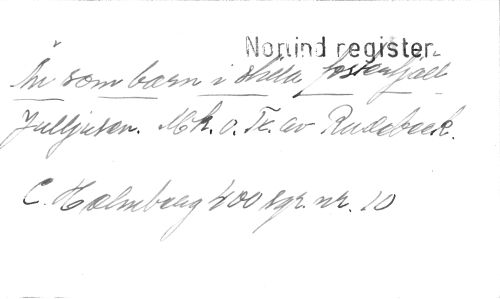 Norund register
Än som barn i stilla fosterfjäll
Julljusen. Mk. o. Tr. av Rudebeck.
C. Holmberg 400 sgr. nr. 10